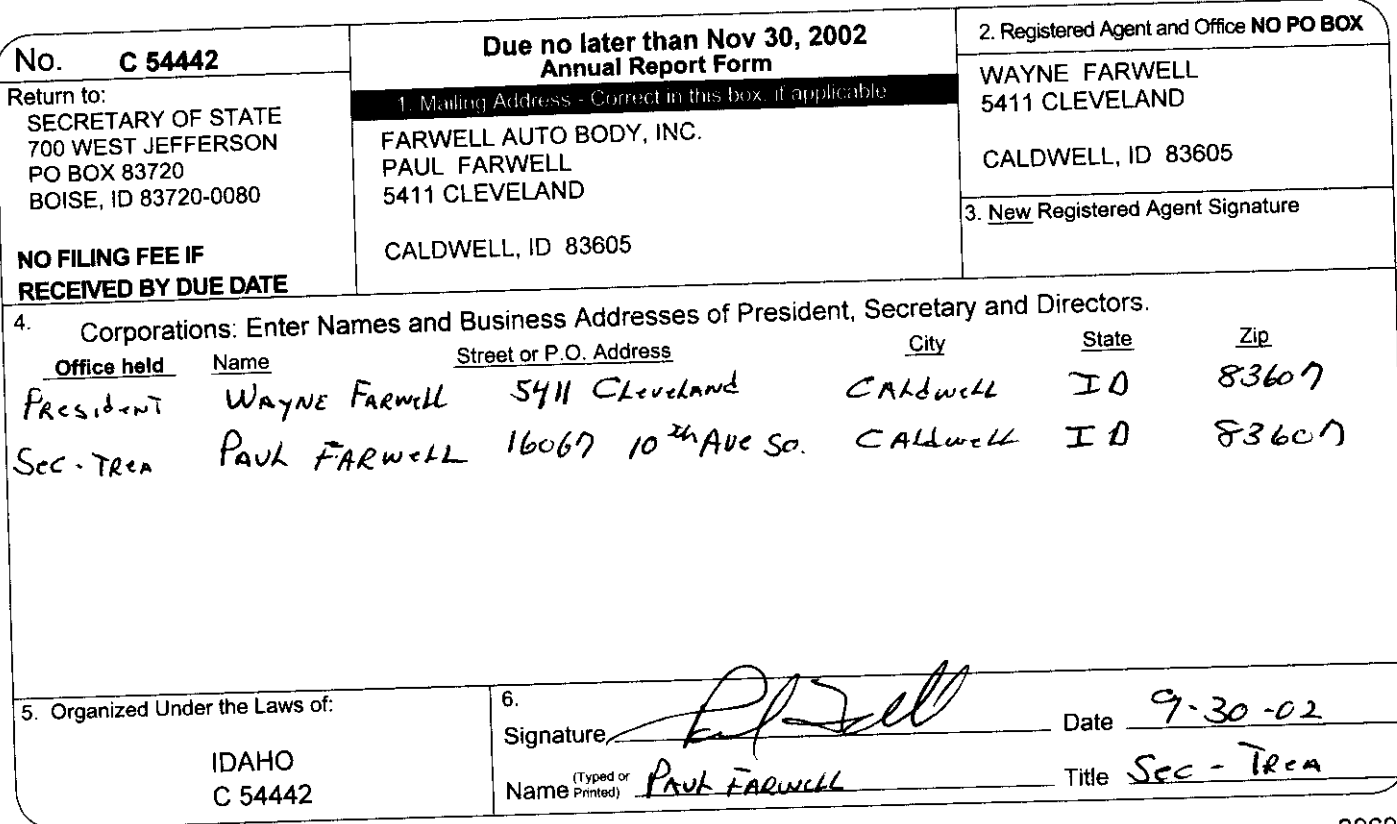 No. C 54442
Return to:
SECRETARY OF STATE
700 WEST JEFFERSON
PO BOX 83720
BOISE, ID 83720-0080
NO FILING FEE IF
RECEIVED BY DUE DATE
Due no later than Nov 30, 2002
Annual Report Form
1. Mailing Address - Correct in this box, if applicable
FARWELL AUTO BODY, INC.
PAUL FARWELL
5411 CLEVELAND
CALDWELL, ID 83605
2. Registered Agent and Office NO PO BOX
WAYNE FARWELL
5411 CLEVELAND
CALDWELL, ID 83605
3. New Registered Agent Signature
4. Corporations: Enter Names and Business Addresses of President, Secretary and Directors.
Office held Name Street or P.O. Address City State Zip
President Wayne Farwell 5411 Cleveland Caldwell ID 83607
Sec - Trea Paul Farwell 16067 10th Ave So. Caldwell ID 83607
5. Organized Under the Laws of:
IDAHO
C 54442
6.
Signature Date 9-30-02
Name (Typed or Printed) Paul Farwell Title Sec - Trea